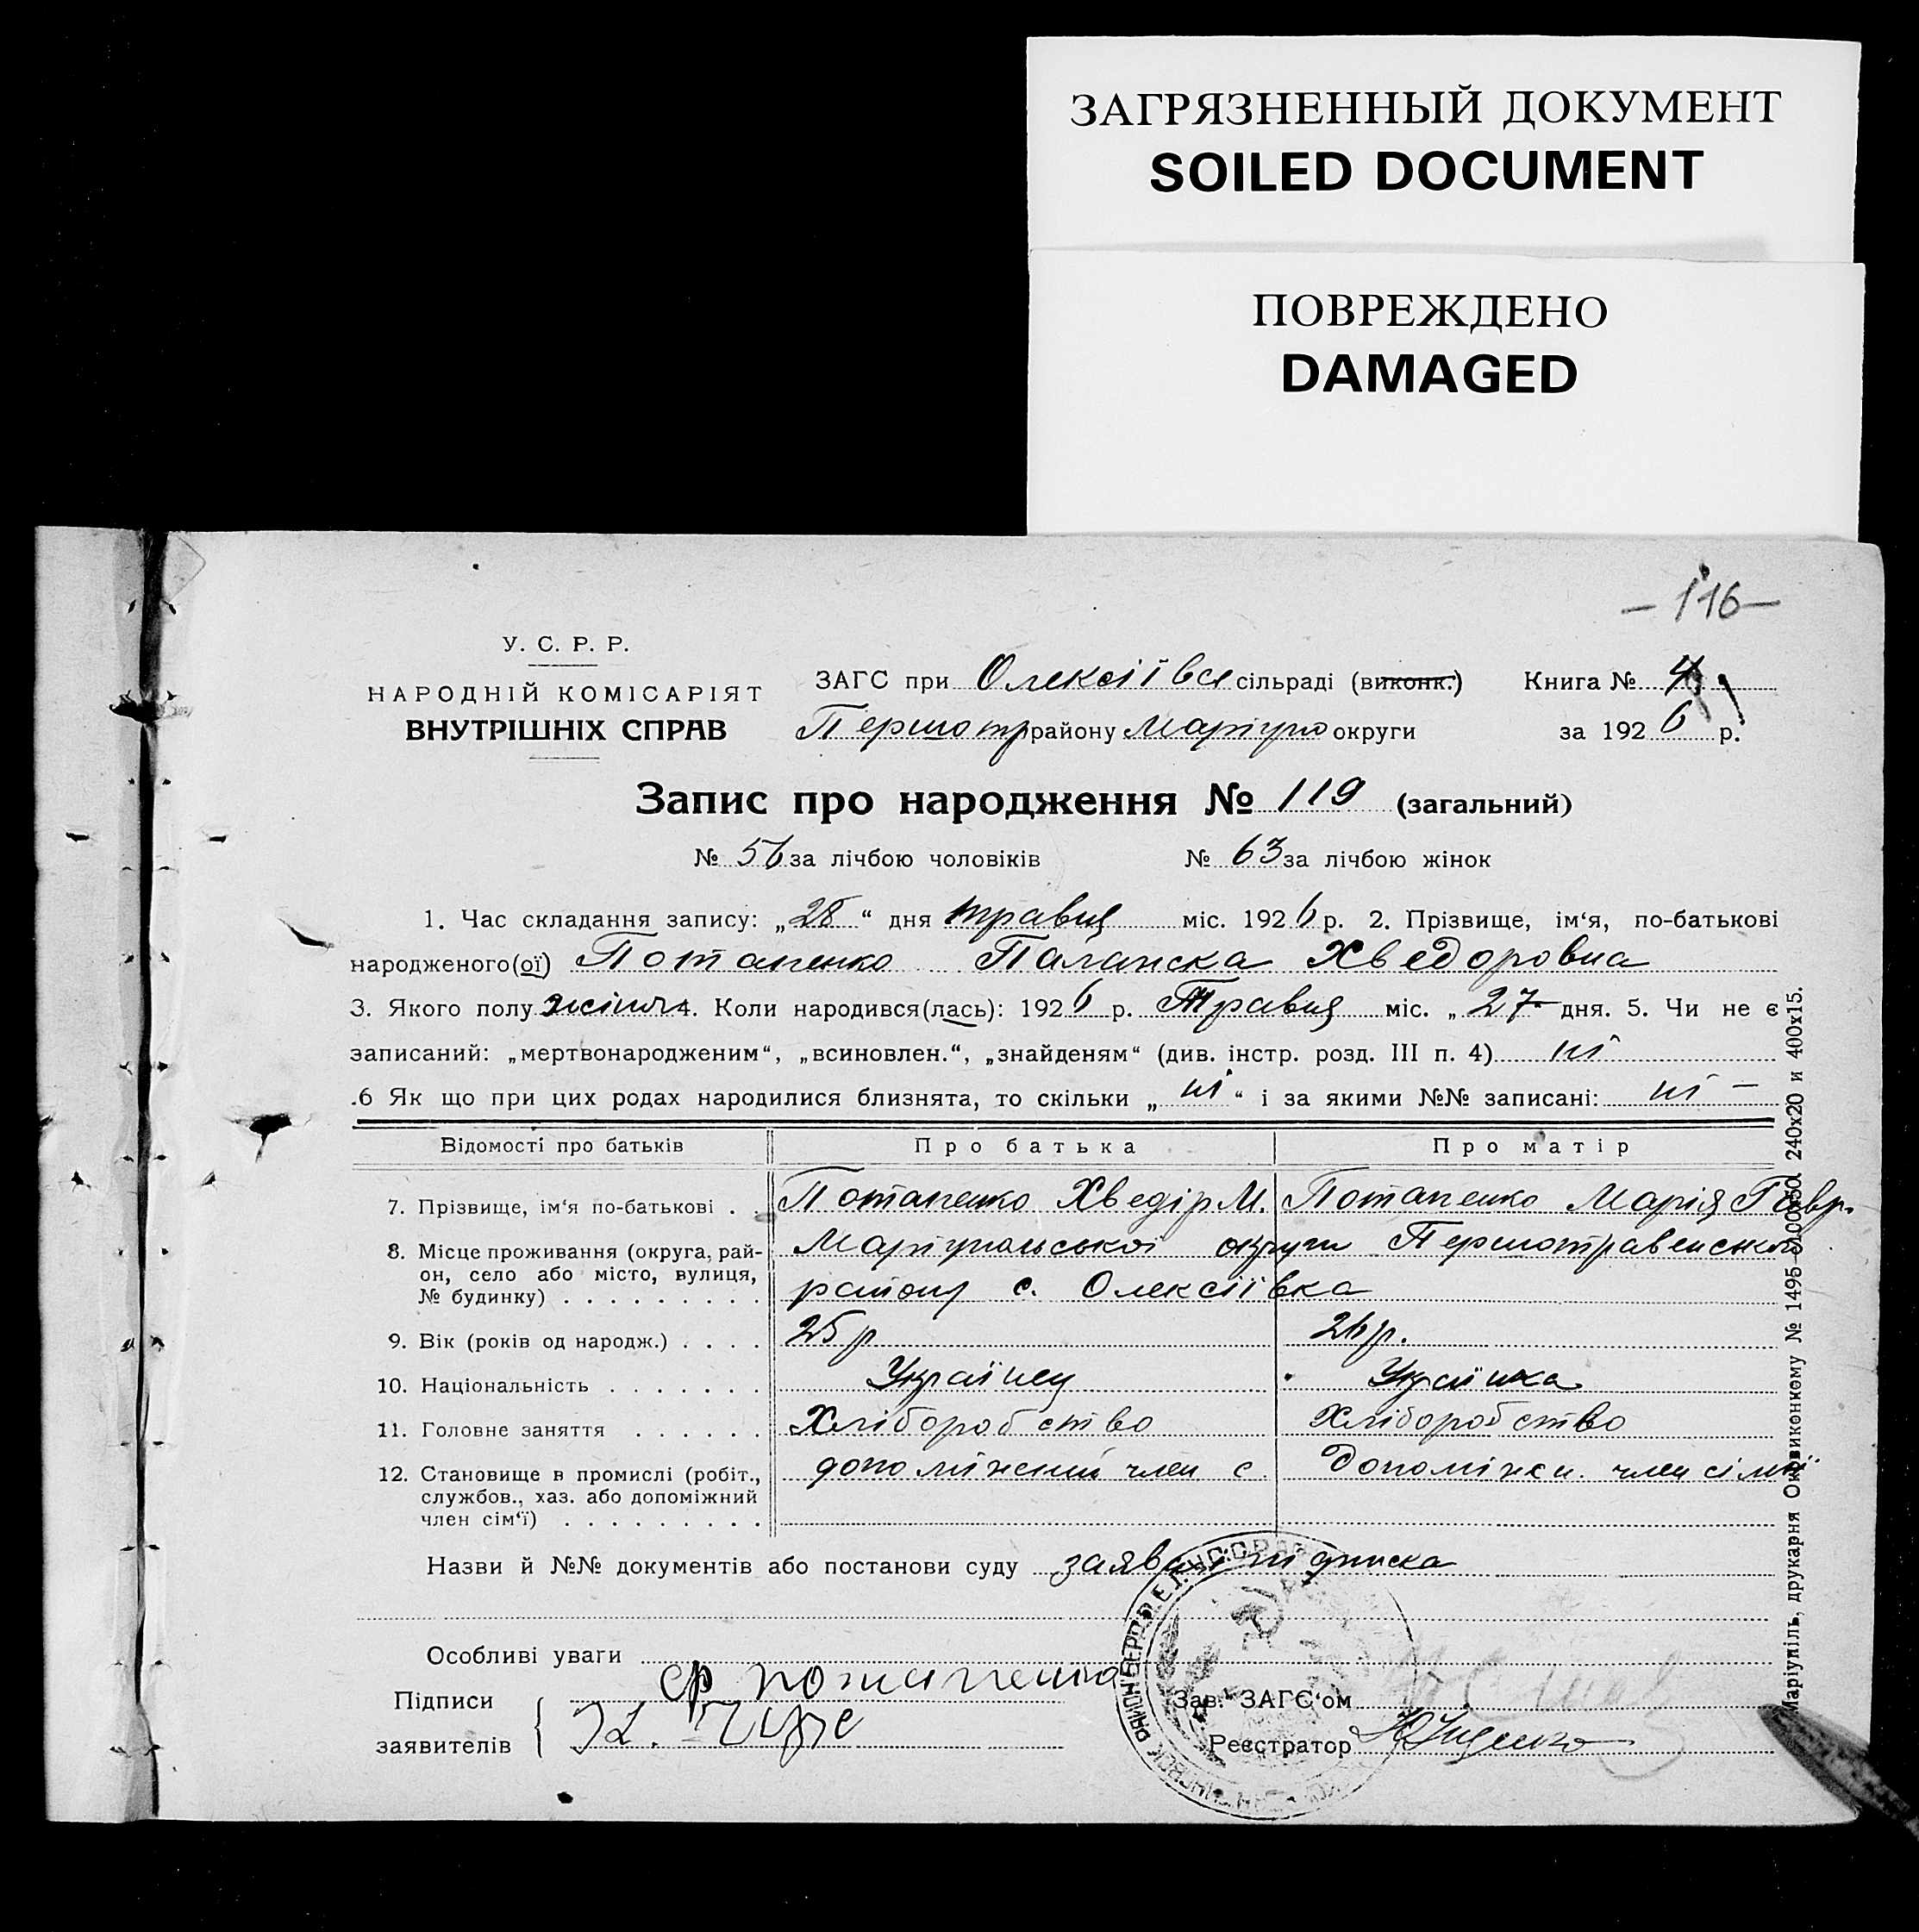 ЗАГРЯЗНЕННЫЙ ДОКУМЕНТ
SOILED DOCUMENT
ПОВРЕЖДЕНО
DAMAGED
— 116 —
У. С. Р. Р.
НАРОДНІЙ КОМІСАРІЯТ
ВНУТРІШНІХ СПРАВ
ЗАГС при Олексіївськ сільраді (виконк.) Книга № 4
Першотр району Маріупо округи за 1926 р.
Запис про народження № 119 (загальний)
№ 56 за лічбою чоловіків № 63 за лічбою жінок
1. Час складання запису: „28“ дня травня міс. 1926 р. 2. Прізвище, ім‘я, по-батькові
народженого(ої) Потапенко Палапска Хведоровна
3. Якого полу жіноч 4. Коли народився(лась): 1926 р. Травня міс. „27 дня. 5. Чи не є
записаний: „мертвонародженим“, „всиновлен.“, „знайденям“ (див. інстр. розд. III п. 4) ні
.6 Як що при цих родах народилися близнята, то скільки „ні“ і за якими №№ записані: ні —
Відомості про батьків Про батька Про матір
7. Прізвище, ім‘я по-батькові . . Потапенко Хведір М. Потапенко Марія Гавр.
8. Місце проживання (округа, рай- Маріупольської округи Першотравенського
он, село або місто, вулиця, району с. Олексіївка
№ будинку) . . . . . . . . .
9. Вік (років од народж.) . . . . 25 р 26 р.
10. Національність . . . . . . . Українец Українка
11. Головне заняття . . . . . . Хліборобство Хліборобство
12. Становище в промислі (робіт., допоміжний член с. Допоміжн. член сімї
службов., хаз. або допоміжний
член сім‘ї) . . . . . . . . .
Назви й №№ документів або постанови суду заява і підписка
Особливі уваги
Підписи ср потапенко Зав. ЗАГС‘ом
заявителів Реєстратор
Маріупіль, друкарня Окрвиконкому № 1495 240х20 и 400х15.